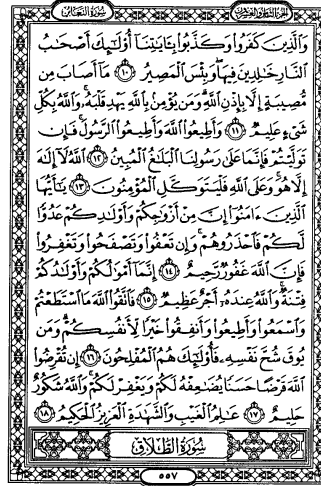 سورة التغابن
الجزء الثامن والعشرون
وَالَّذِينَ كَفَرُوا وَكَذَّبُوا بِـَٔايَـٰتِنَآ أُولَـٰٓئِكَ أَصْحَـٰبُ
النَّارِ خَـٰلِدِينَ فِيهَا وَبِئْسَ الْمَصِيرُ ١٠ مَآ أَصَابَ مِن
مُّصِيبَةٍ إِلَّا بِإِذْنِ اللَّهِ وَمَن يُؤْمِنۢ بِاللَّهِ يَهْدِ قَلْبَهُۥ وَاللَّهُ بِكُلِّ
شَىْءٍ عَلِيمٌ ١١ وَأَطِيعُوا اللَّهَ وَأَطِيعُوا الرَّسُولَ فَإِن
تَوَلَّيْتُمْ فَإِنَّمَا عَلَىٰ رَسُولِنَا الْبَلَـٰغُ الْمُبِينُ ١٢ اللَّهُ لَآ إِلَـٰهَ
إِلَّا هُوَ وَعَلَى اللَّهِ فَلْيَتَوَكَّلِ الْمُؤْمِنُونَ ١٣ يَـٰٓأَيُّهَا
الَّذِينَ ءَامَنُوٓا إِنَّ مِنْ أَزْوَٰجِكُمْ وَأَوْلَـٰدِكُمْ عَدُوًّا
لَّكُمْ فَاحْذَرُوهُمْ وَإِن تَعْفُوا وَتَصْفَحُوا وَتَغْفِرُوا
فَإِنَّ اللَّهَ غَفُورٌ رَّحِيمٌ ١٤ إِنَّمَآ أَمْوَٰلُكُمْ وَأَوْلَـٰدُكُمْ
فِتْنَةٌ وَاللَّهُ عِندَهُۥٓ أَجْرٌ عَظِيمٌ ١٥ فَاتَّقُوا اللَّهَ مَا اسْتَطَعْتُمْ
وَاسْمَعُوا وَأَطِيعُوا وَأَنفِقُوا خَيْرًا لِّأَنفُسِكُمْ وَمَن
يُوقَ شُحَّ نَفْسِهِۦ فَأُولَـٰٓئِكَ هُمُ الْمُفْلِحُونَ ١٦ إِن تُقْرِضُوا
اللَّهَ قَرْضًا حَسَنًا يُضَـٰعِفْهُ لَكُمْ وَيَغْفِرْ لَكُمْ وَاللَّهُ شَكُورٌ
حَلِيمٌ ١٧ عَـٰلِمُ الْغَيْبِ وَالشَّهَـٰدَةِ الْعَزِيزُ الْحَكِيمُ ١٨
سُورَةُ الطَّلَاقِ
٥٥٧